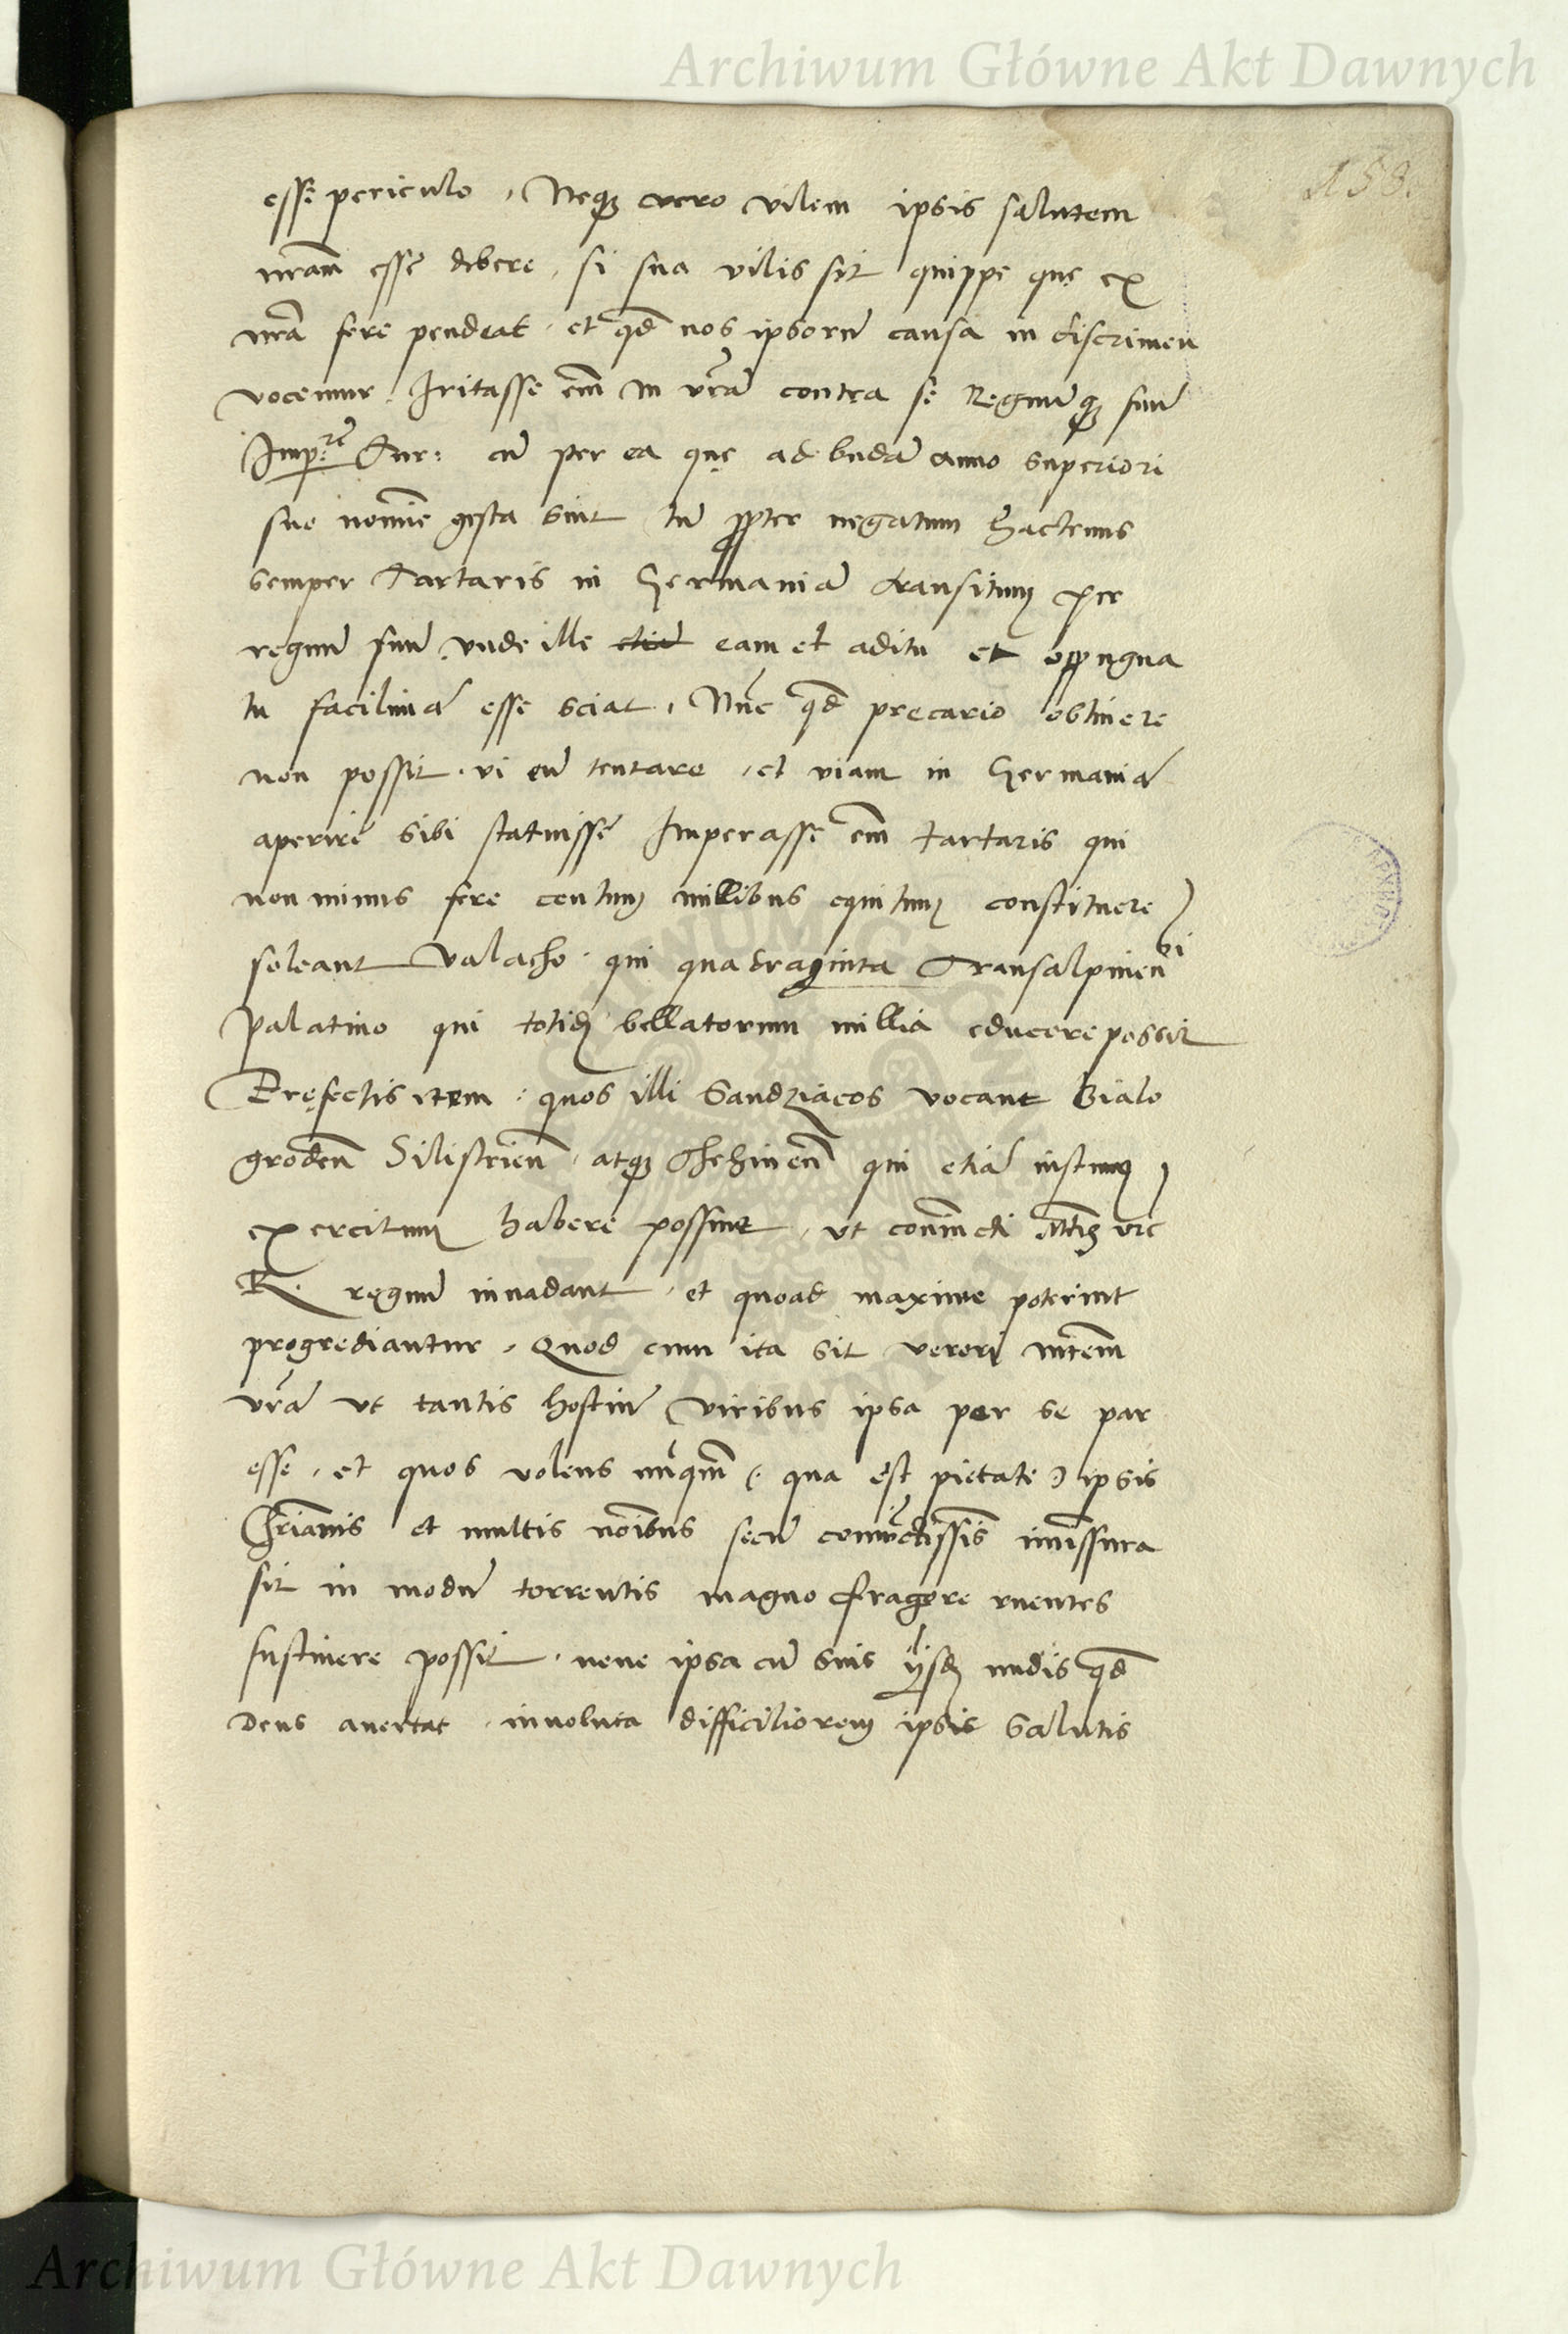 Archiwum Główne Akt Dawnych
158.
esse periculo, Neqꝫ vero vilem ipsis salutem
nr̃am esse debere, si sua vilis sit quippe quę ex
nr̃a fere pendeat, et qd̃ nos ipsorũ causa in discrimen
vocemur. Iritasse em̃ M vr̃ã contra se Regnũqꝫ suũ
Imp:rẽ Tur: cũ per ea quę ad budã anno superiori
suo nomĩe gesta sint tũ ꝓpter negatum hactenus
semper Tartaris in Germaniã transitum per
regnũ suũ, vnde ille etiã eam et aditu et oppugna
tu facilimã esse sciat, Nũc qd̃ precario obtinere
non possit, vi eũ tentare, et viam in Germaniã
aperire sibi statuisse Imperasse em̃ tartaris qui
non minus fere centum millibus equitum constituere
soleant Valacho, qui quadraginta Transalpinen̄si
Palatino qui totidẽ bellatorum millia educere possit
Pręfectis item, quos illi Sandziacos vocant Bialo
groden̄ Silistrien̄, atqꝫ Thehinen̄ qui etiã iustum
exercitum habere possint, vt coniũcti Mtis vrę
R. regnũ inuadant, et quoad maxime poterint
progrediantur, Quod cum ita sit vereri Mtem̃
vr̃ã vt tantis hostiũ viribus ipsa per se par
esse, et quos volens nũqm̃ (: qua est pietate :) ipsis
Chr̃ianis et multis nõibus secũ coniũctissĩs imissura
sit in modũ torrentis magno fragore ruentes
sustinere possit, neue ipsa cũ suis ijsdẽ nudis qd̃
Deus auertat, inuoluta difficiliorem ipsis Salutis
Archiwum Główne Akt Dawnych